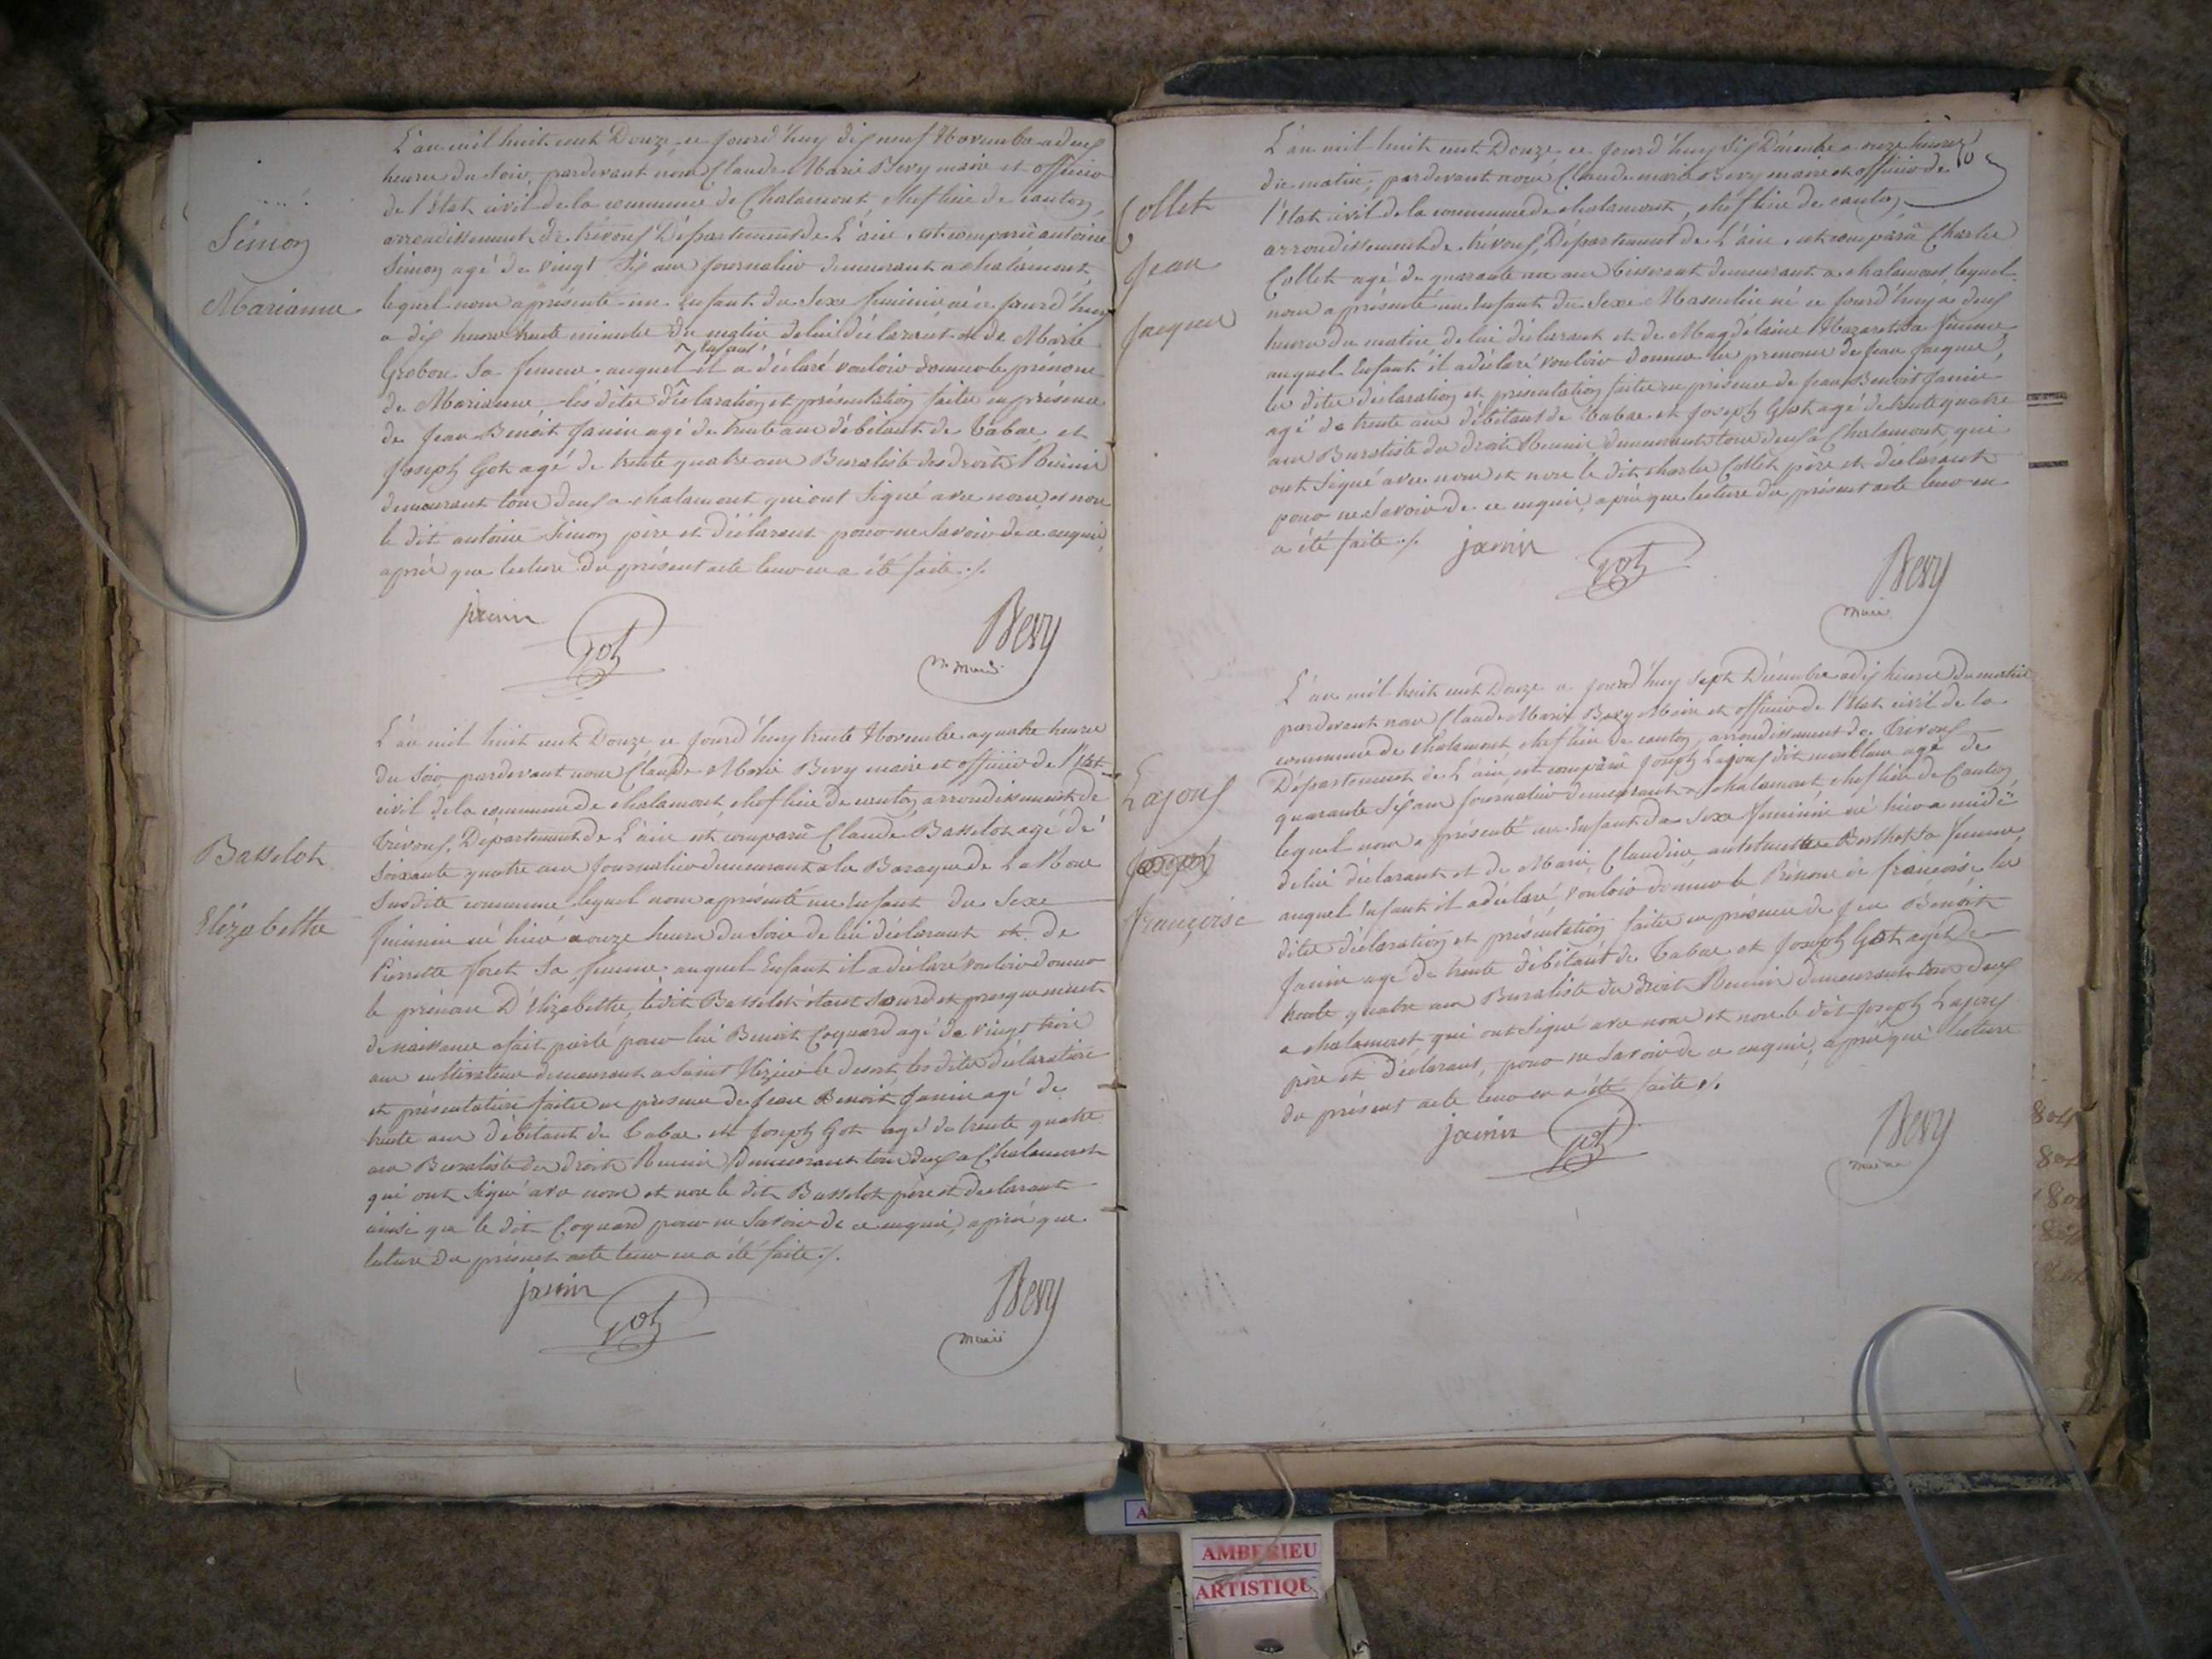 Simon
Marianne
L'an mil huit cent Douze ce jourd'huy dix neuf Novembre a deux
heures du soir, pardevant nous Claude Marie Bevy maire et officier
de l'état civil de la commune de Chalamont, chef lieu de canton,
arrondissement de trévoux Département de L'ain, est comparu antoine
Simon agé de vingt six ans journalier demeurant a chalamont,
lequel nous a présenté un Enfant du Sexe féminin né ce jourd'huy
a dix heures trente minutes du matin de lui déclarant et de Marie
Grobon Sa femme auquel Enfant il a déclaré vouloir donner le prénom
de Marianne, les dites déclaration et présentation faites en présence
de Jean Benoit Janin agé de trente ans débitant de Tabac, et
Joseph Got agé de trente quatre ans Buraliste des droits Réunis
demeurant tous deux a chalamont, qui ont Signé avec nous, et non
le dit antoine Simon père et déclarant pour ne Savoir de ce enquis,
après que lecture du présent acte leur en a été faite ./.
janin
Got
Bevy
Basselot
Elizabethe
L'an mil huit cent Douze, ce jourd'huy trente Novembre a quatre heures
du Soir pardevant nous Claude Marie Bevy maire et officier de l'Etat
civil de la commune de chalamont chef lieu de canton arrondissement de
Trévoux, Département de L'ain est comparu Claude Basselot agé de
Soixante quatre ans journalier demeurant a la Baraque de La Roue
Susdite commune lequel nous a présenté un Enfant du Sexe
féminin né hier a onze heures du Soir de lui déclarant et de
Pierrette foret Sa femme auquel Enfant il a déclaré vouloir donner
le prénom D'Elizabethe, le dit Basselot étant Sourd et presque muet
de naissance a fait parlé pour lui Benoit Coquard agé de vingt trois
ans cultivateur demeurant a Saint Nizier le desert, les dites déclaration
et présentation faites en présence de Jean Benoit Janin agé de
trente ans débitant de Tabac et Joseph Got agé de trente quatre
ans Buraliste des droits Réunis demeurant tous deux a Chalamont
qui ont Signé avec nous et non le dit Basselot père et déclarant
ainsi que le dit Coquard pour ne Savoir de ce enquis, après que
lecture du présent acte leur en a été faite ./.
janin
Got
Bevy
maire
Collet
Jean
Jacques
L'an mil huit cent Douze ce jourd'huy Six Décembre a onze heures
du matin, pardevant nous Claude marie Bevy maire et officier de
l'état civil de la commune de chalamont, chef lieu de canton
arrondissement de trévoux, Département de L'ain, est comparu Charles
Collet agé de quarante un ans tisserant demeurant a chalamont, lequel
nous a présenté un Enfant du Sexe Masculin né ce jourd'huy a deux
heures du matin de lui déclarant et de Magdelaine Mazaret Sa femme
auquel Enfant il a déclaré vouloir donner les prénoms de Jean Jacques,
les dites déclaration et présentation faites en présence de Jean Benoit Janin
agé de trente ans débitant de Tabac et Joseph Got agé de trente quatre
ans Buraliste des droits Réunis, demeurant tous deux a Chalamont, qui
ont Signé avec nous et non le dit charles Collet père et déclarant
pour ne Savoir de ce enquis, après que lecture du présent acte leur en
a été faite ./.
janin
Got
Bevy
maire
Lajoux
Joseph
françoise
L'an mil huit cent Douze ce jourd'huy sept Décembre a dix heures du matin
pardevant nous Claude Marie Bevy Maire et officier de l'Etat civil de la
commune de chalamont, chef lieu de canton, arrondissement de Trévoux
Département de L'ain, est comparu Joseph Lajoux dit agé de
quarante Six ans journalier demeurant a chalamont chef lieu de Canton,
lequel nous a présenté un Enfant du Sexe féminin né hier a midi
de lui déclarant et de Marie Claudine Berthet Sa femme,
auquel Enfant il a déclaré vouloir donner le Prénom de françoise, les
dites déclaration et présentation faites en présence de Jean Benoit
Janin agé de trente débitant de Tabac et Joseph Got agé de
trente quatre ans Buraliste des droits Réunis demeurant tous deux
a chalamont qui ont Signé avec nous et non le dit Joseph Lajoux
père et déclarant, pour ne Savoir de ce enquis, après que lecture
du présent acte leur en a été faite ./.
janin
Got
Bevy
maire
AMBERIEU
ARTISTIQUE